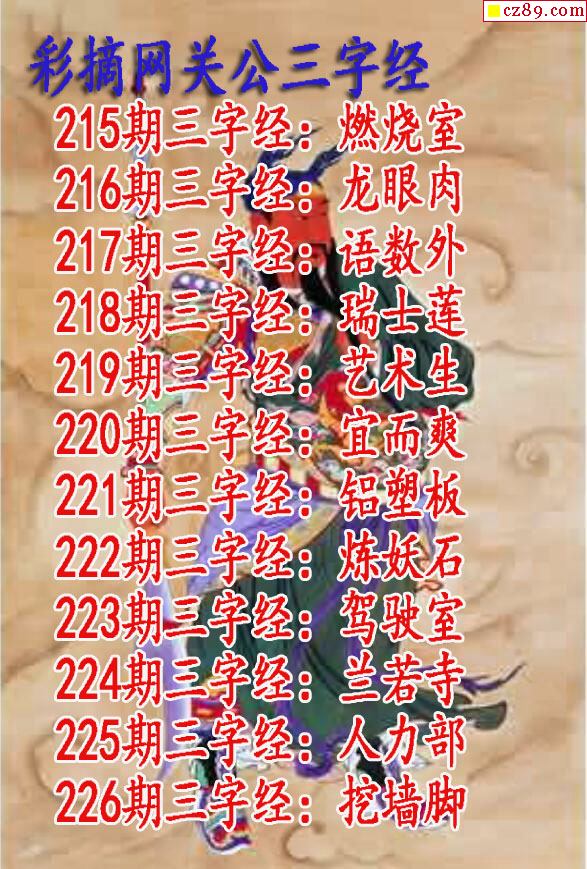 cz89.com
彩摘网关公三字经
215期三字经：燃烧室
216期三字经：龙眼肉
217期三字经：语数外
218期三字经：瑞士莲
219期三字经：艺术生
220期三字经：宜而爽
221期三字经：铝塑板
222期三字经：炼妖石
223期三字经：驾驶室
224期三字经：兰若寺
225期三字经：人力部
226期三字经：挖墙脚